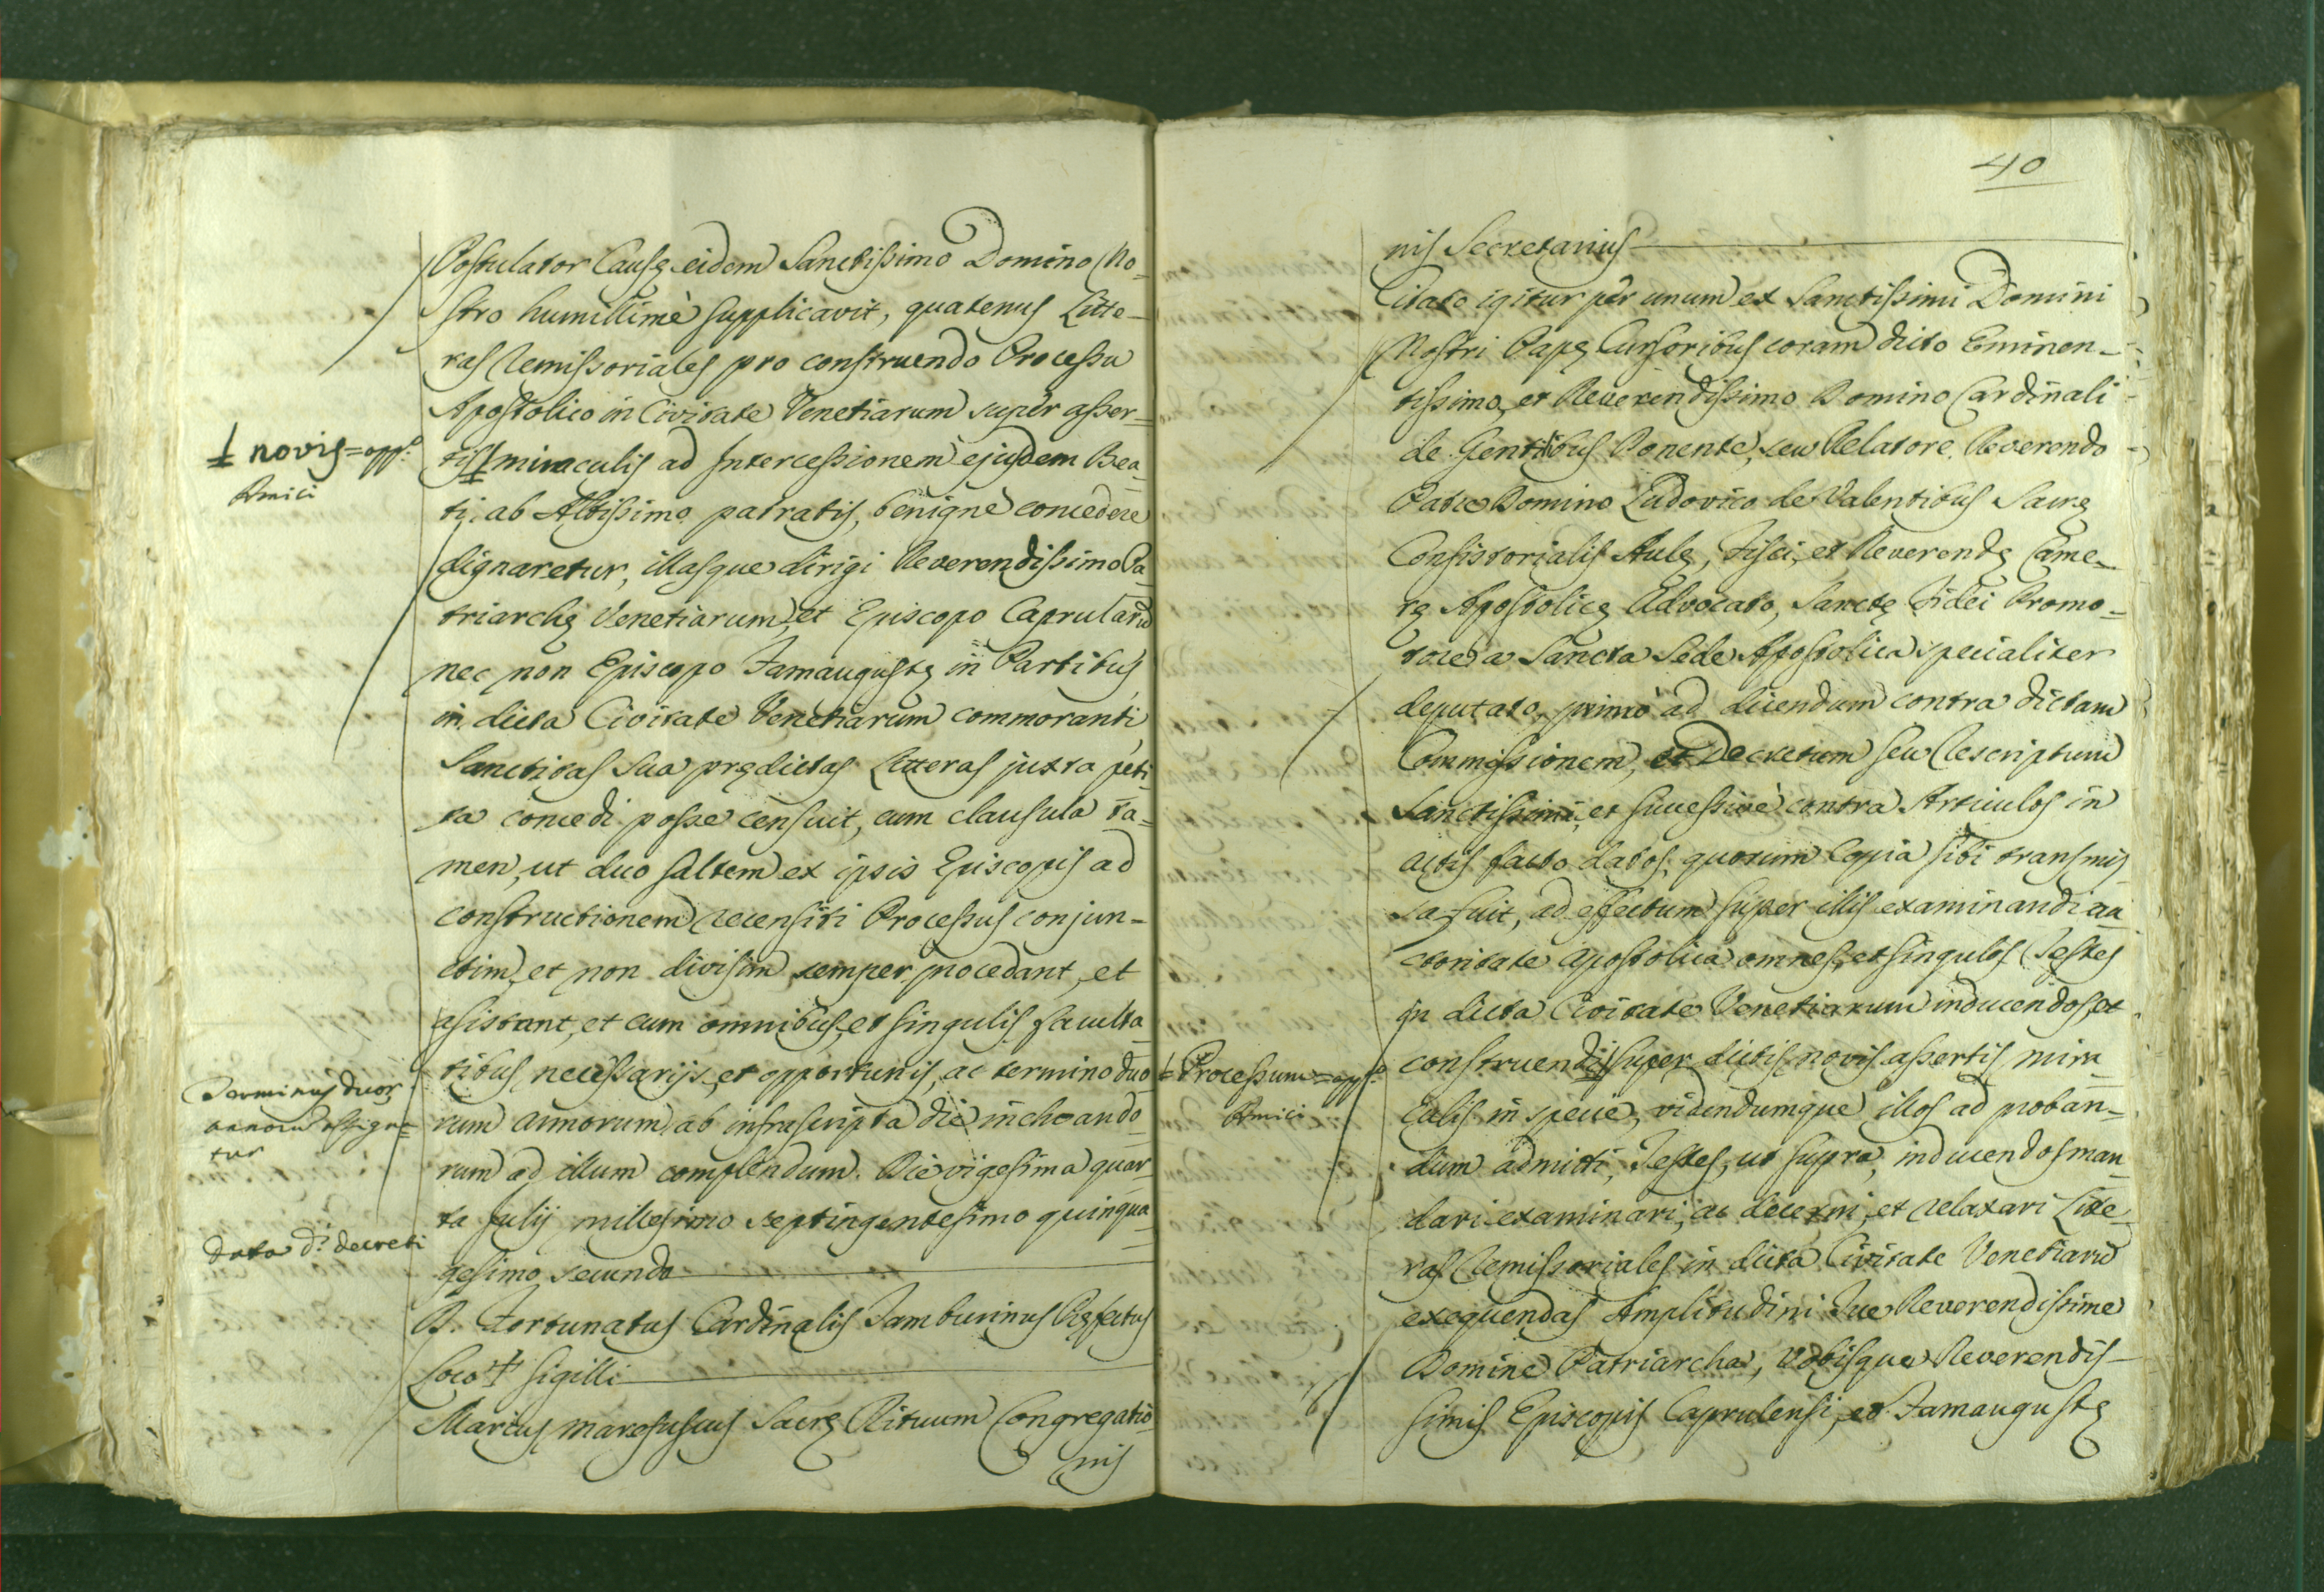 Postulator Causę eidem Sanctissimo Domino No-
stro humillimè supplicavit, quatenus Litte-
ras Remissoriales pro construendo Processu
Apostolico in Civitate Venetiarum super asser-
⊥ novis = app.
Amici
tis ⊥ miraculis ad Intercessionem ejusdem Bea-
ti, ab Altissimo patratis, benignè concedere
dignaretur, illasque dirigi Reverendissimo Pa-
triarchę Venetiarum, et Episcopo Caprulanū
nec non Episcopo Famaugustę in Partibus
in dicta Civitate Venetiarum commoranti
Sanctitas Sua prędictas Litteras juxta peti-
ta concedi posse censuit, cum clausula ta-
men, ut duo saltem ex ipsis Episcopis ad
constructionem recensiti Processus conjun-
ctim, et non divisim semper procedant, et
asistant, et cum omnibus, et singulis faculta-
tibus necessarijs, et opportunis, ac termino duo-
Terminus duor.
annorū assigna-
tur
rum annorum ab infrascripta die inchoando-
rum ad illum complendum. Die vigesima quar-
ta Julij millesimo septingentesimo quinqua-
data d.i decreti
gesimo secundo
D. Fortunatus Cardinalis Tamburinus Pręfectus
Loco + Sigilli
Marcus Marefuscus Sacrę Rituum Congregatio-
nis
40
nis Secretarius
Citato igitur per unum ex Sanctissimi Domini
Nostri Papę Cursoribus coram dicto Eminen-
tissimo, et Reverendissimo Domino Cardinali
de Gentibus Ponente, seu Relatore Reverendo
Patre Domino Ludovico de Valentibus Sacrę
Consistorialis Aulę, Fisci, et Reverendę Came-
rę Apostolicę Advocato, Sanctę Fidei Promo-
tore a Sancta Sede Apostolica specialiter
deputato, primò ad dicendum contra dictam
Commissionem, et Decretum seu Rescriptum
Sanctissimi, et successivè contra Articulos in
actis facto datos, quorum Copia sibi transmis
sa fuit, ad effectum super illis examinandi au
ctoritate Apostolica omnes, et singulos Testes
in dicta Civitate Venetiarum inducendos, et
⊥ Processum = app.
Amici
construendi super dictis novis assertis mira-
culis in specie, videndumque illos ad proban-
dum admitti, Testes, ut supra, inducendos man-
dari examinari, ac decerni, et relaxari Litte-
ras Remissoriales in dicta Civitate Venetiarū
exequendas Amplitudini Tue Reverendissime
Domine Patriarcha, Vobisque Reverendis-
simis Episcopis Caprulensi, et Famaugustę